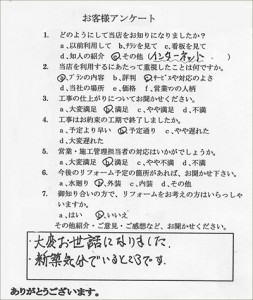 お客様アンケート
1. どのようにして当店をお知りになりましたか?
a、以前利用して b、チラシを見て c、看板を見て
d、知人の紹介 e、その他(インターネット)
2. 当店を利用するにあたって重視したことは何ですか。
a、プランの内容 b、評判 c、サービスや対応のよさ
d、当社の場所 e、価格 f、営業マンの人柄
3. 工事の仕上がりについてお聞かせください。
a、大変満足 b、満足 c、やや不満 d、不満
4. 工事はお約束の工期で終了しましたか。
a、予定より早い b、予定通り c、やや遅れた
d、大変遅れた
5. 営業・施工管理担当者の対応はいかがでしょうか。
a、大変満足 b、満足 c、やや不満 d、不満
6. 今後のリフォーム予定の箇所があれば、お聞かせ下さい。
a、水廻り b、外装 c、内装 d、その他
7. 御知り合いの方で、リフォームをお考えの方はいらっしゃいますか。
a、はい b、いいえ
その他紹介・ご意見・ご感想など、お聞かせください。
・大変お世話になりました。
・新築気分でいるところです。
ありがとうございます。